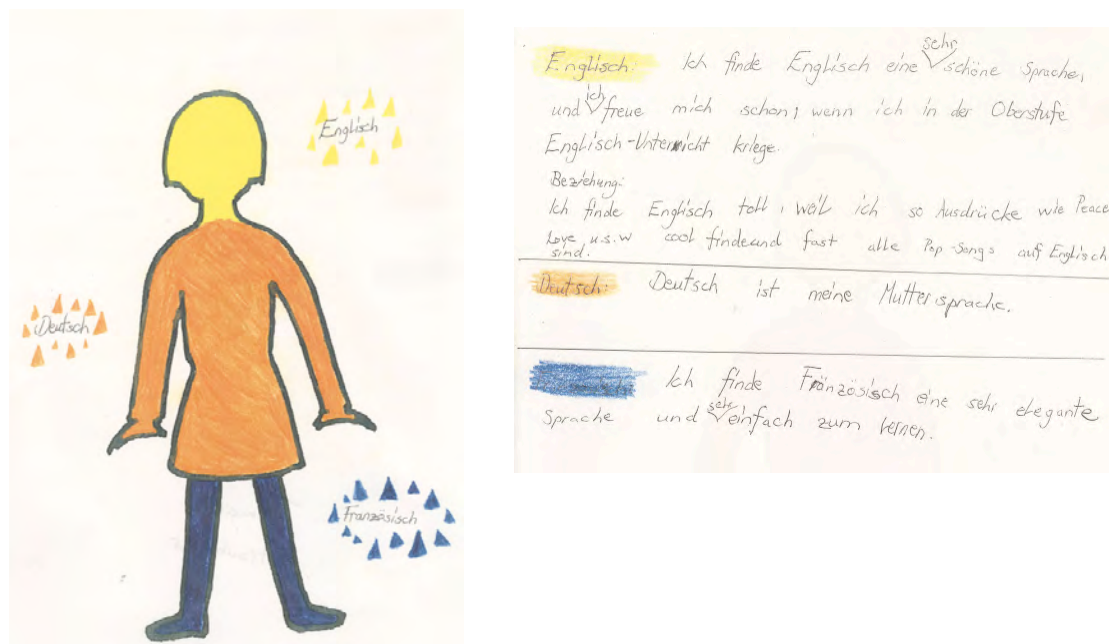 Englisch
Deutsch
Französisch
Englisch: Ich finde Englisch eine sehr schöne Sprache,
und ich freue mich schon, wenn ich in der Oberstufe
Englisch-Unterricht kriege.
Beziehung:
Ich finde Englisch toll, weil ich so Ausdrücke wie Peace
Love u.s.w cool finde und fast alle Pop-Songs auf Englisch
sind.
Deutsch: Deutsch ist meine Muttersprache.
Ich finde Französisch eine sehr elegante
Sprache und sehr einfach zum lernen.